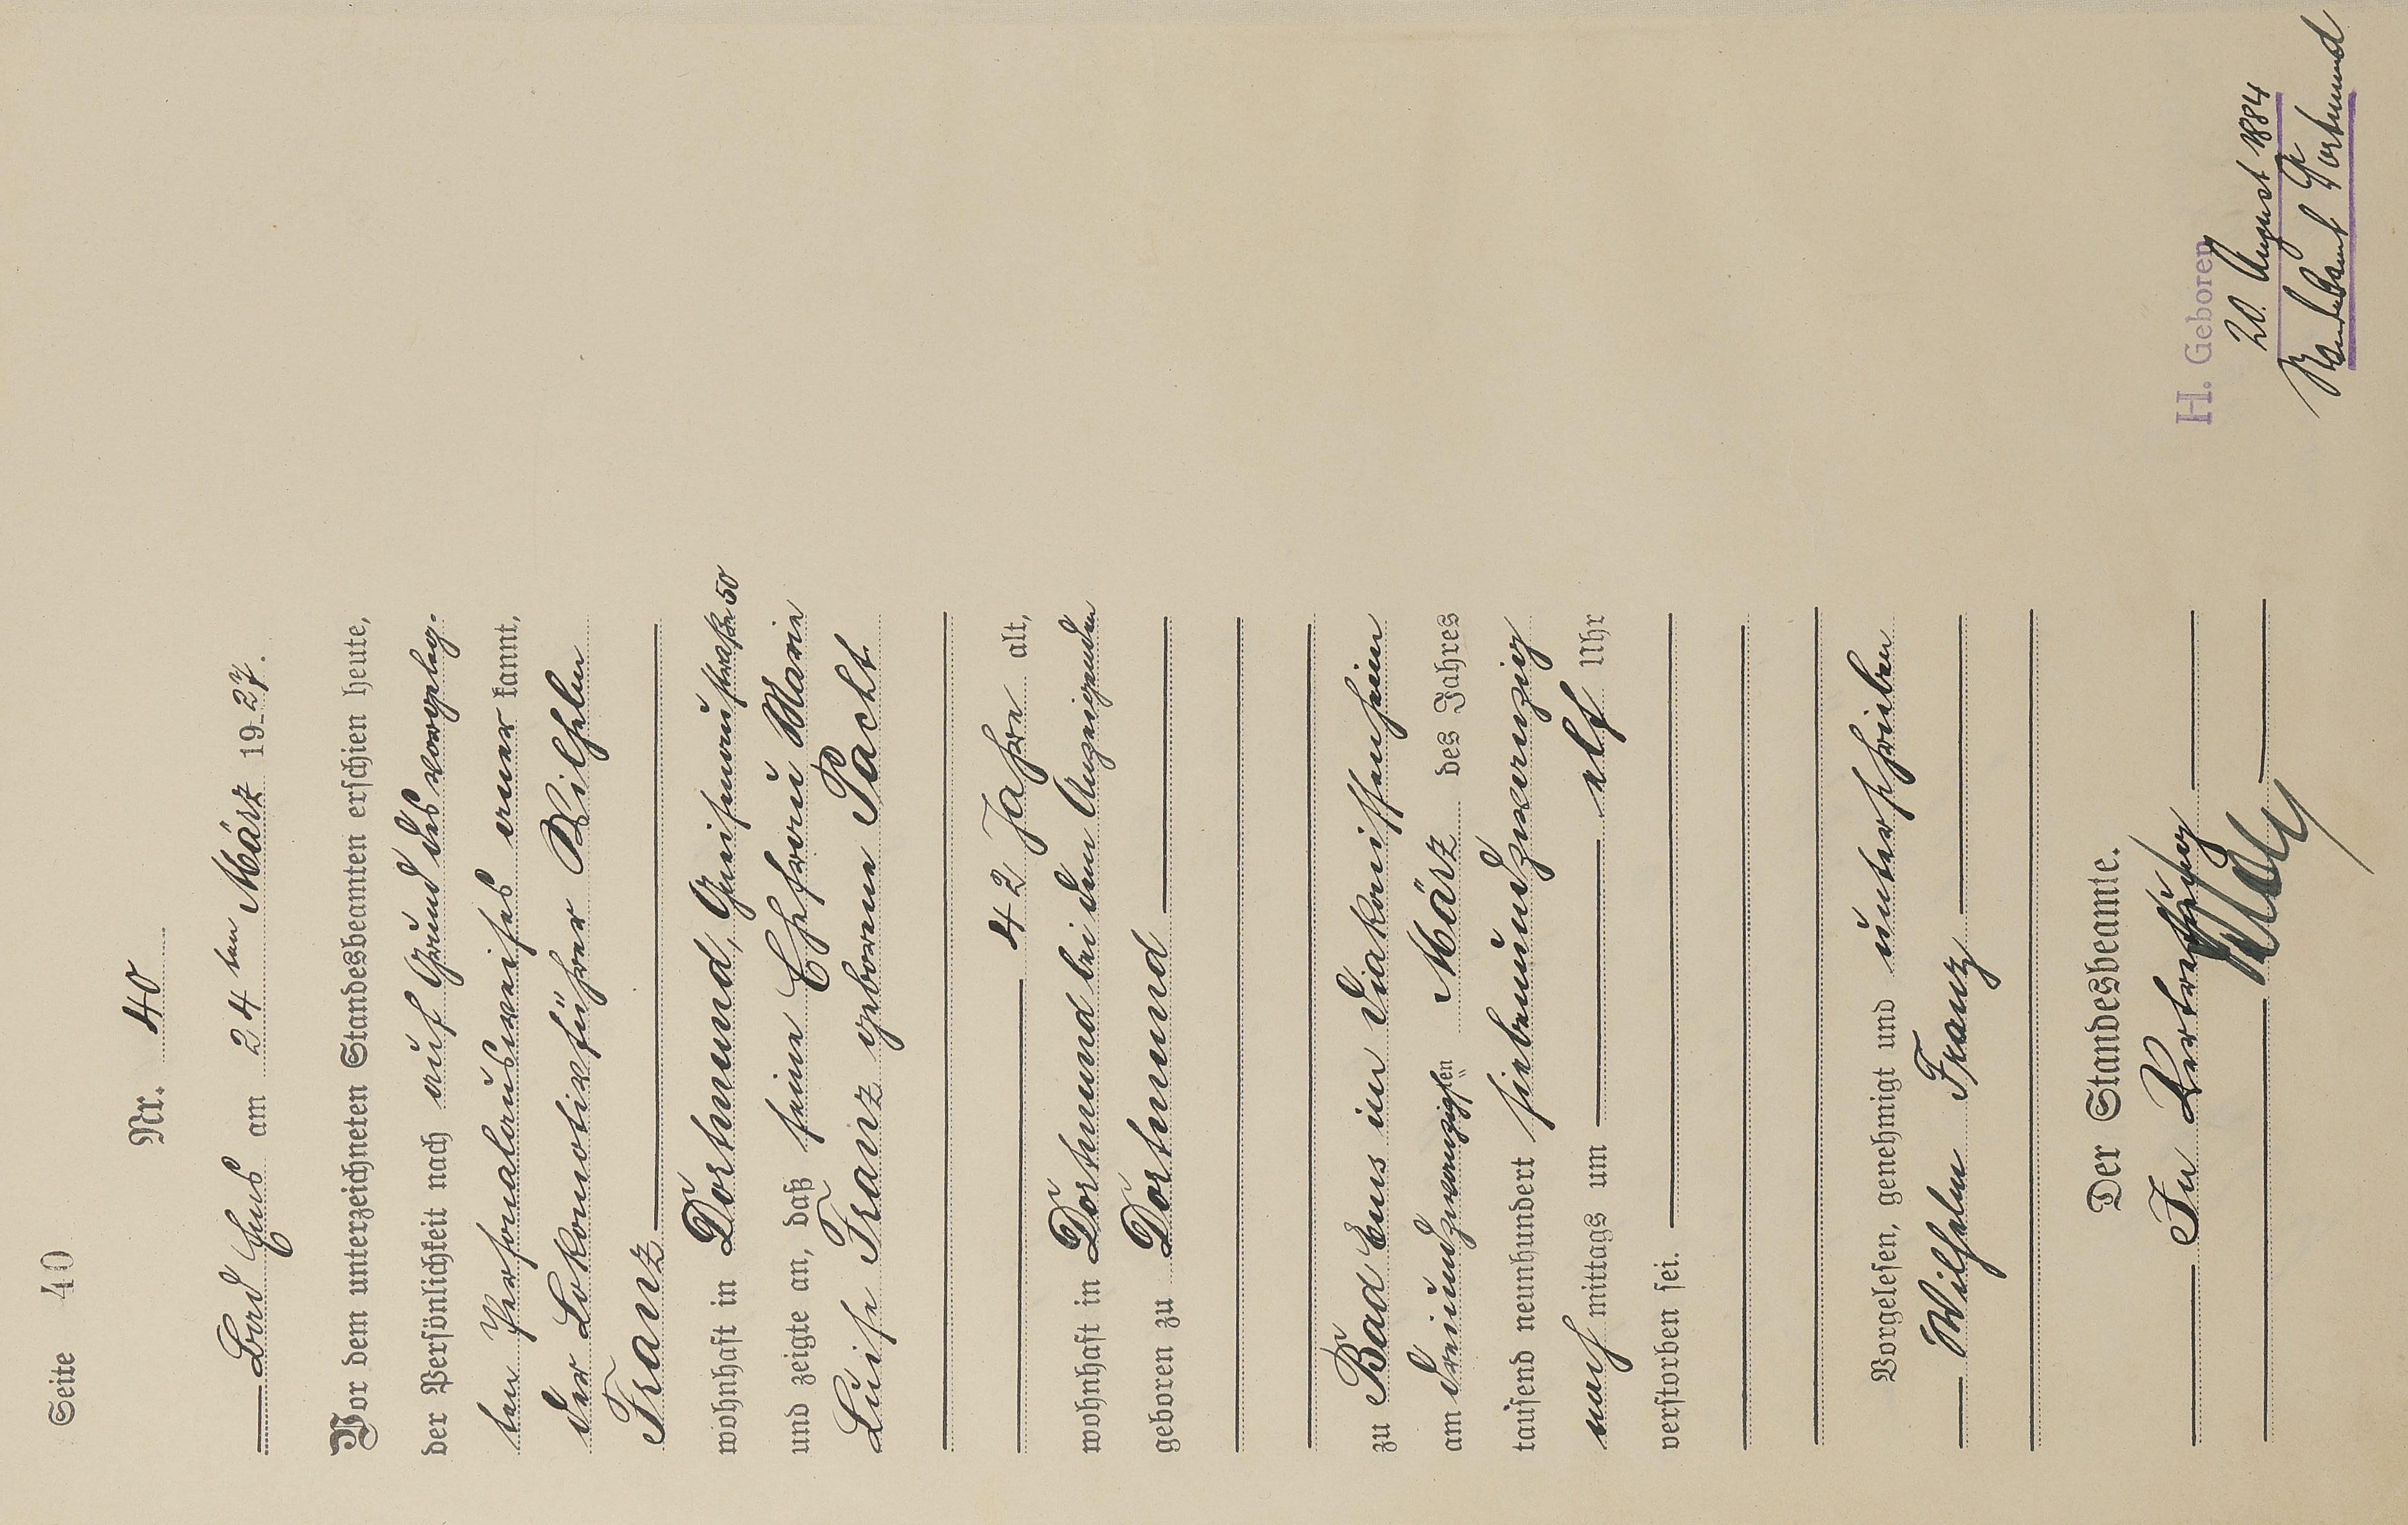 Seite 40
Nr. 40
Bad Ems am 24 ten März 1927.
Vor dem unterzeichneten Standesbeamten erschien heute,
der Persönlichkeit nach auf Grund des vorgeleg-
ten Personalausweises aner kannt,
der Lokomotivführer Wilhelm
Franz
wohnhaft in Dortmund, Gneisenaustraße 50
und zeigte an, daß seine Ehefrau Marie
Luise Franz geborene Pacht
42 Jahre alt,
wohnhaft in Dortmund bei dem Anzeigenden
geboren zu Dortmund
zu Bad Ems im Diakonissenheim
am dreiundzwanzigsten März des Jahres
tausend neunhundert siebenundzwanzig
nach mittags um elf Uhr
verstorben sei.
Vorgelesen, genehmigt und unterschrieben
Wilhelm Franz
Der Standesbeamte.
In Vertretung
H. Geboren
20. August 1884
Standesamt Dortmund